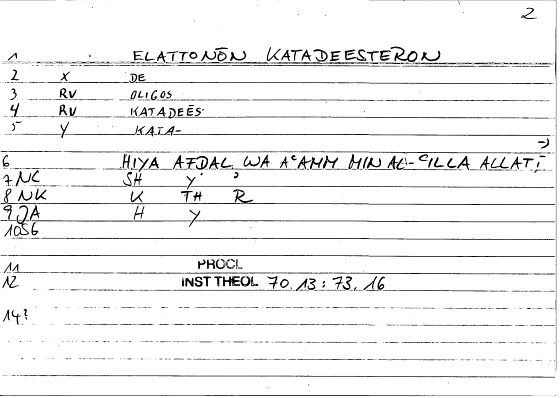 2
1 ELATTONŌN KATADEESTERON
2 X DE
3 RV OLIGOS
4 RV KATADEĒS
5 Y KATA-
6 HIYA AFDAL WA AʿAMM MIN AL-ʿILLA ALLATĪ
7 NC SH Y ʾ
8 NK K TH R
9 JA H Y
10 56
11 PROCL
12 INST THEOL 70.13 : 73, 16
14?